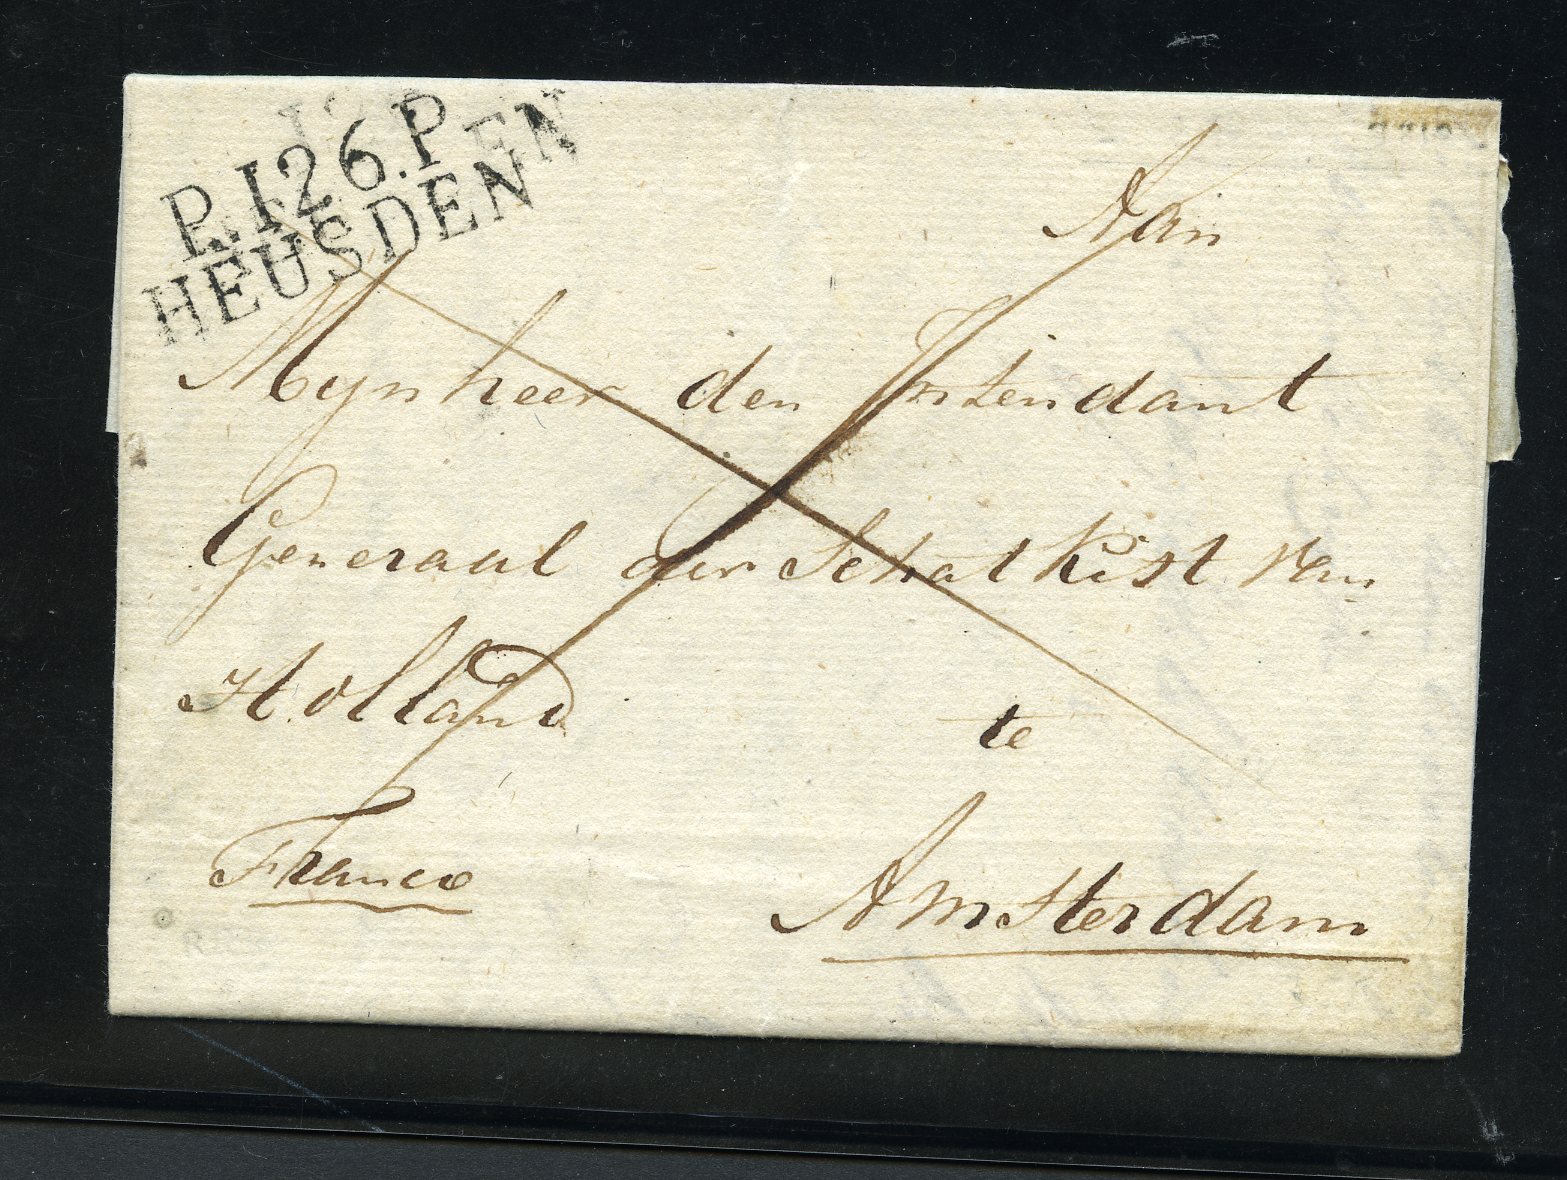 P.126.P.
HEUSDEN
Aan
Mynheer den Intendant
Generaal der Schatkist van
Holland te
Franco Amsterdam